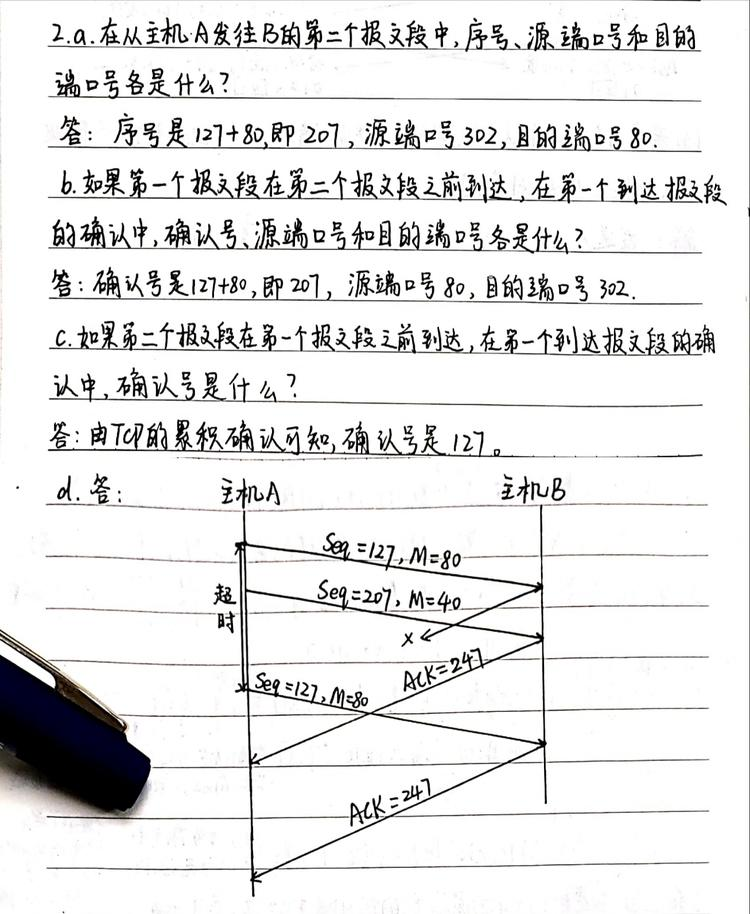 2.a.在从主机A发往B的第二个报文段中,序号、源端口号和目的
端口号各是什么?
答: 序号是127+80,即207, 源端口号302,目的端口号80.
b.如果第一个报文段在第二个报文段之前到达,在第一个到达报文段
的确认中,确认号、源端口号和目的端口号各是什么?
答:确认号是127+80,即207, 源端口号80,目的端口号302.
c.如果第二个报文段在第一个报文段之前到达,在第一个到达报文段的确
认中,确认号是什么?
答:由TCP的累积确认可知,确认号是127。
d.答: 主机A 主机B
Seq=127,M=80
Seq=207,M=40
超
时
x
ACK=247
Seq=127,M=80
ACK=247